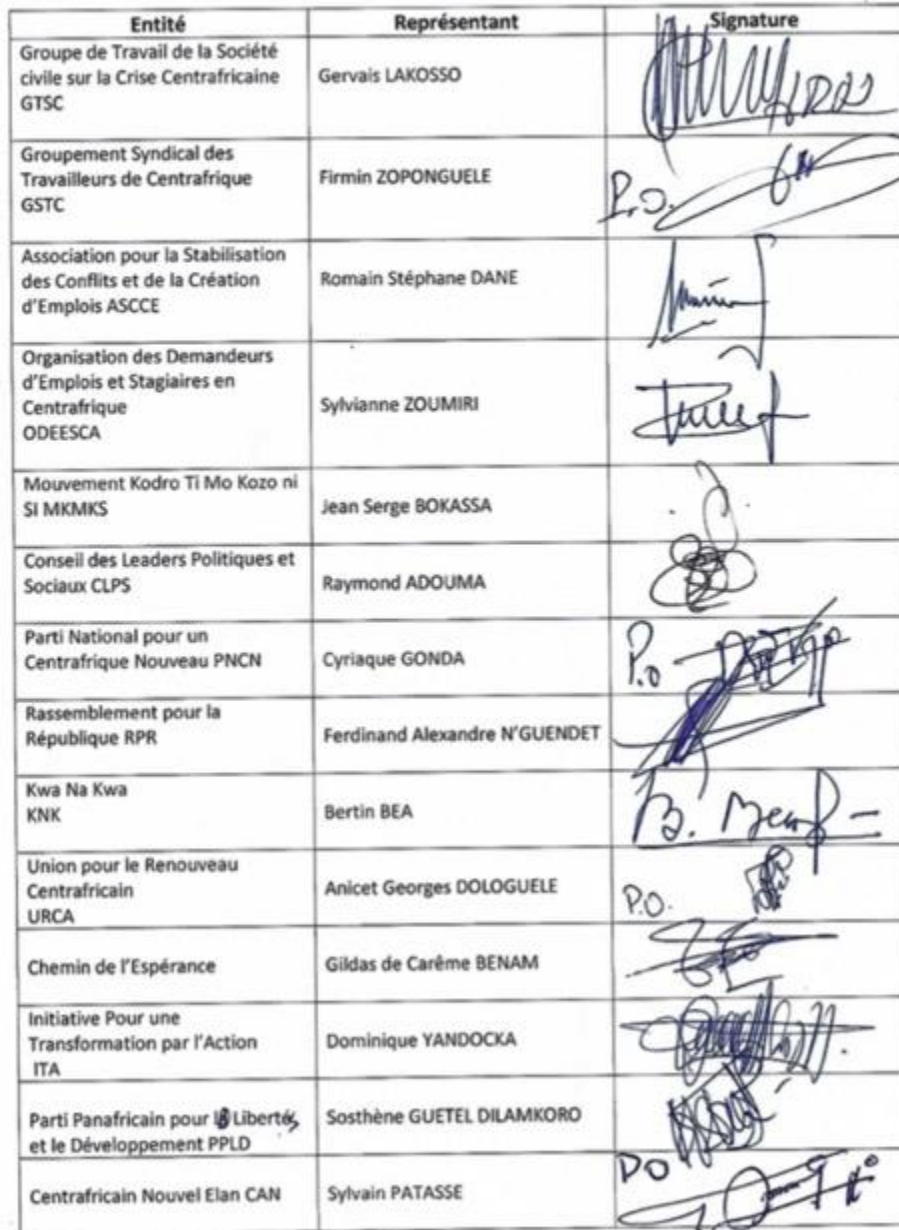 Entité Représentant Signature
Groupe de Travail de la Société
civile sur la Crise Centrafricaine
GTSC
Gervais LAKOSSO
Groupement Syndical des
Travailleurs de Centrafrique
GSTC
Firmin ZOPONGUELE
P.O.
Association pour la Stabilisation
des Conflits et de la Création
d'Emplois ASCCE
Romain Stéphane DANE
Organisation des Demandeurs
d'Emplois et Stagiaires en
Centrafrique
ODEESCA
Sylvianne ZOUMIRI
Mouvement Kodro Ti Mo Kozo ni
SI MKMKS
Jean Serge BOKASSA
Conseil des Leaders Politiques et
Sociaux CLPS
Raymond ADOUMA
Parti National pour un
Centrafrique Nouveau PNCN
Cyriaque GONDA
P.o
Rassemblement pour la
République RPR
Ferdinand Alexandre N'GUENDET
Kwa Na Kwa
KNK
Bertin BEA
B.
Union pour le Renouveau
Centrafricain
URCA
Anicet Georges DOLOGUELE
P.O.
Chemin de l'Espérance
Gildas de Carême BENAM
Initiative Pour une
Transformation par l'Action
ITA
Dominique YANDOCKA
Parti Panafricain pour Libertés
et le Développement PPLD
Sosthène GUETEL DILAMKORO
Centrafricain Nouvel Elan CAN
Sylvain PATASSE
PO